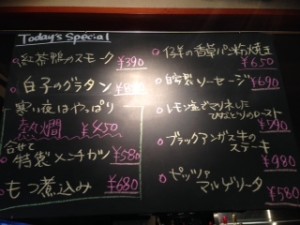 Today's Special
紅茶鴨のスモーク ¥390
白子のグラタン
寒い夜はやっぱり
熱燗 ¥450
合せて
特製メンチカツ ¥580
もつ煮込み ¥680
仔羊の香草パン粉焼き
¥650
自家製ソーセージ ¥690
レモン塩でマリネした
ひなどりのロースト
¥790
ブラックアンガス牛の
ステーキ
¥980
ピッツァ
マルゲリータ
¥580